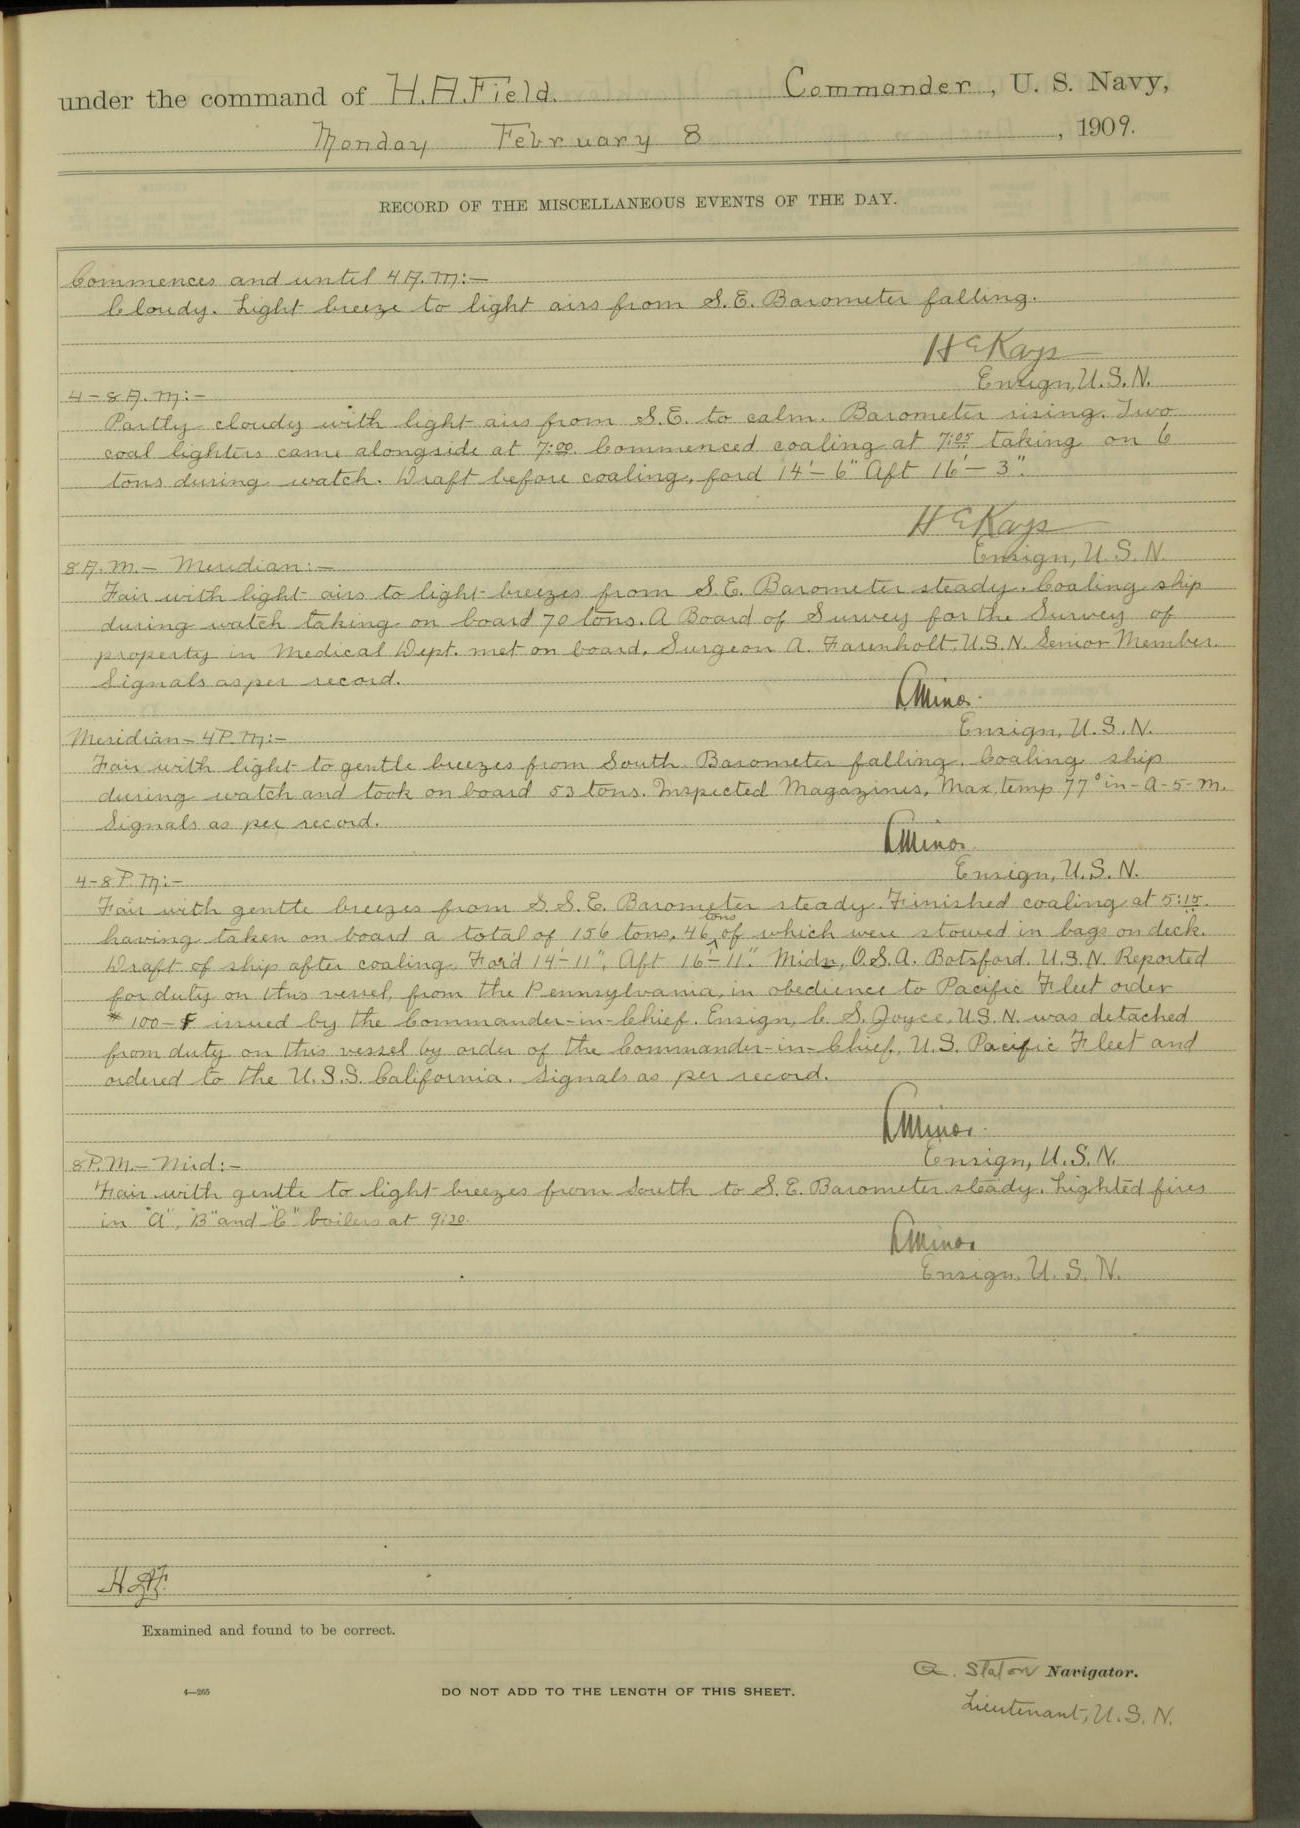 under the command of H.A.Field. Commander, U. S. Navy,
Monday February 8, 1909.
RECORD OF THE MISCELLANEOUS EVENTS OF THE DAY.
Commences and until 4 A.M:—
Cloudy. Light breeze to light airs from S.E. Barometer falling.
H E Kays
Ensign, U.S.N.
4–8 A.M:–
Partly cloudy with light airs from S.E. to calm. Barometer rising. Two
coal lighters came alongside at 7:00. Commenced coaling at 7:05 taking on 6
tons during watch. Draft before coaling, ford 14'–6" Aft 16'–3".
H E Kays
Ensign, U.S.N.
8 A.M.– Meridian:–
Fair with light airs to light breezes from S.E. Barometer steady. Coaling ship
during watch taking on board 70 tons. A Board of Survey for the Survey of
property in Medical Dept. met on board. Surgeon A. Farenholt, U.S.N. Senior Member.
Signals as per record.
L Minor.
Ensign, U.S.N.
Meridian–4 P.M:–
Fair with light to gentle breezes from South. Barometer falling. Coaling ship
during watch and took on board 53 tons. Inspected Magazines, Max. temp 77° in–A–5–M.
Signals as per record.
L Minor.
Ensign, U.S.N.
4–8 P.M:–
Fair with gentle breezes from S.S.E. Barometer steady. Finished coaling at 5:15.
having taken on board a total of 156 tons, 46 tons of which were stowed in bags on deck.
Draft of ship after coaling, For'd 14'–11", Aft 16'–11". Midn, O.S.A. Botsford. U.S.N. Reported
for duty on this vessel, from the Pennsylvania, in obedience to Pacific Fleet order
# 100–F issued by the Commander-in-Chief. Ensign, C. S. Joyce, U.S.N. was detached
from duty on this vessel by order of the Commander-in-Chief, U.S. Pacific Fleet and
ordered to the U.S.S. California. Signals as per record.
L Minor.
Ensign, U.S.N.
8 P.M.– Mid:–
Fair with gentle to light breezes from South to S.E. Barometer steady. Lighted fires
in "A", "B" and "C" boilers at 9:20.
L Minor
Ensign, U.S.N.
H A F.
Examined and found to be correct.
A. Staton Navigator.
4—265 DO NOT ADD TO THE LENGTH OF THIS SHEET.
Lieutenant, U.S.N.